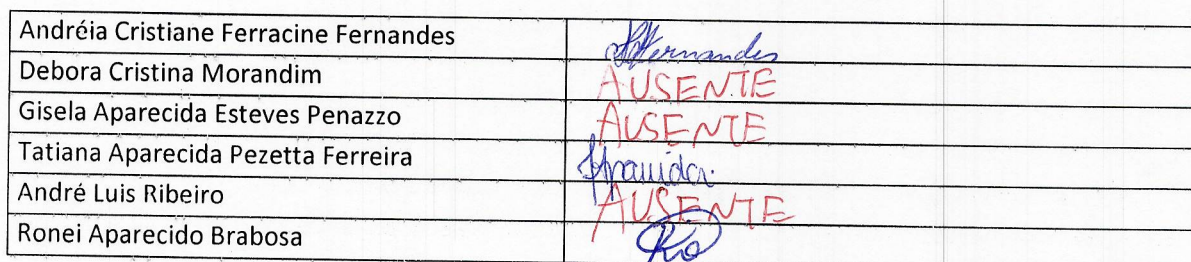 Andréia Cristiane Ferracine Fernandes Fernandes
Debora Cristina Morandim AUSENTE
Gisela Aparecida Esteves Penazzo AUSENTE
Tatiana Aparecida Pezetta Ferreira
André Luis Ribeiro AUSENTE
Ronei Aparecido Brabosa